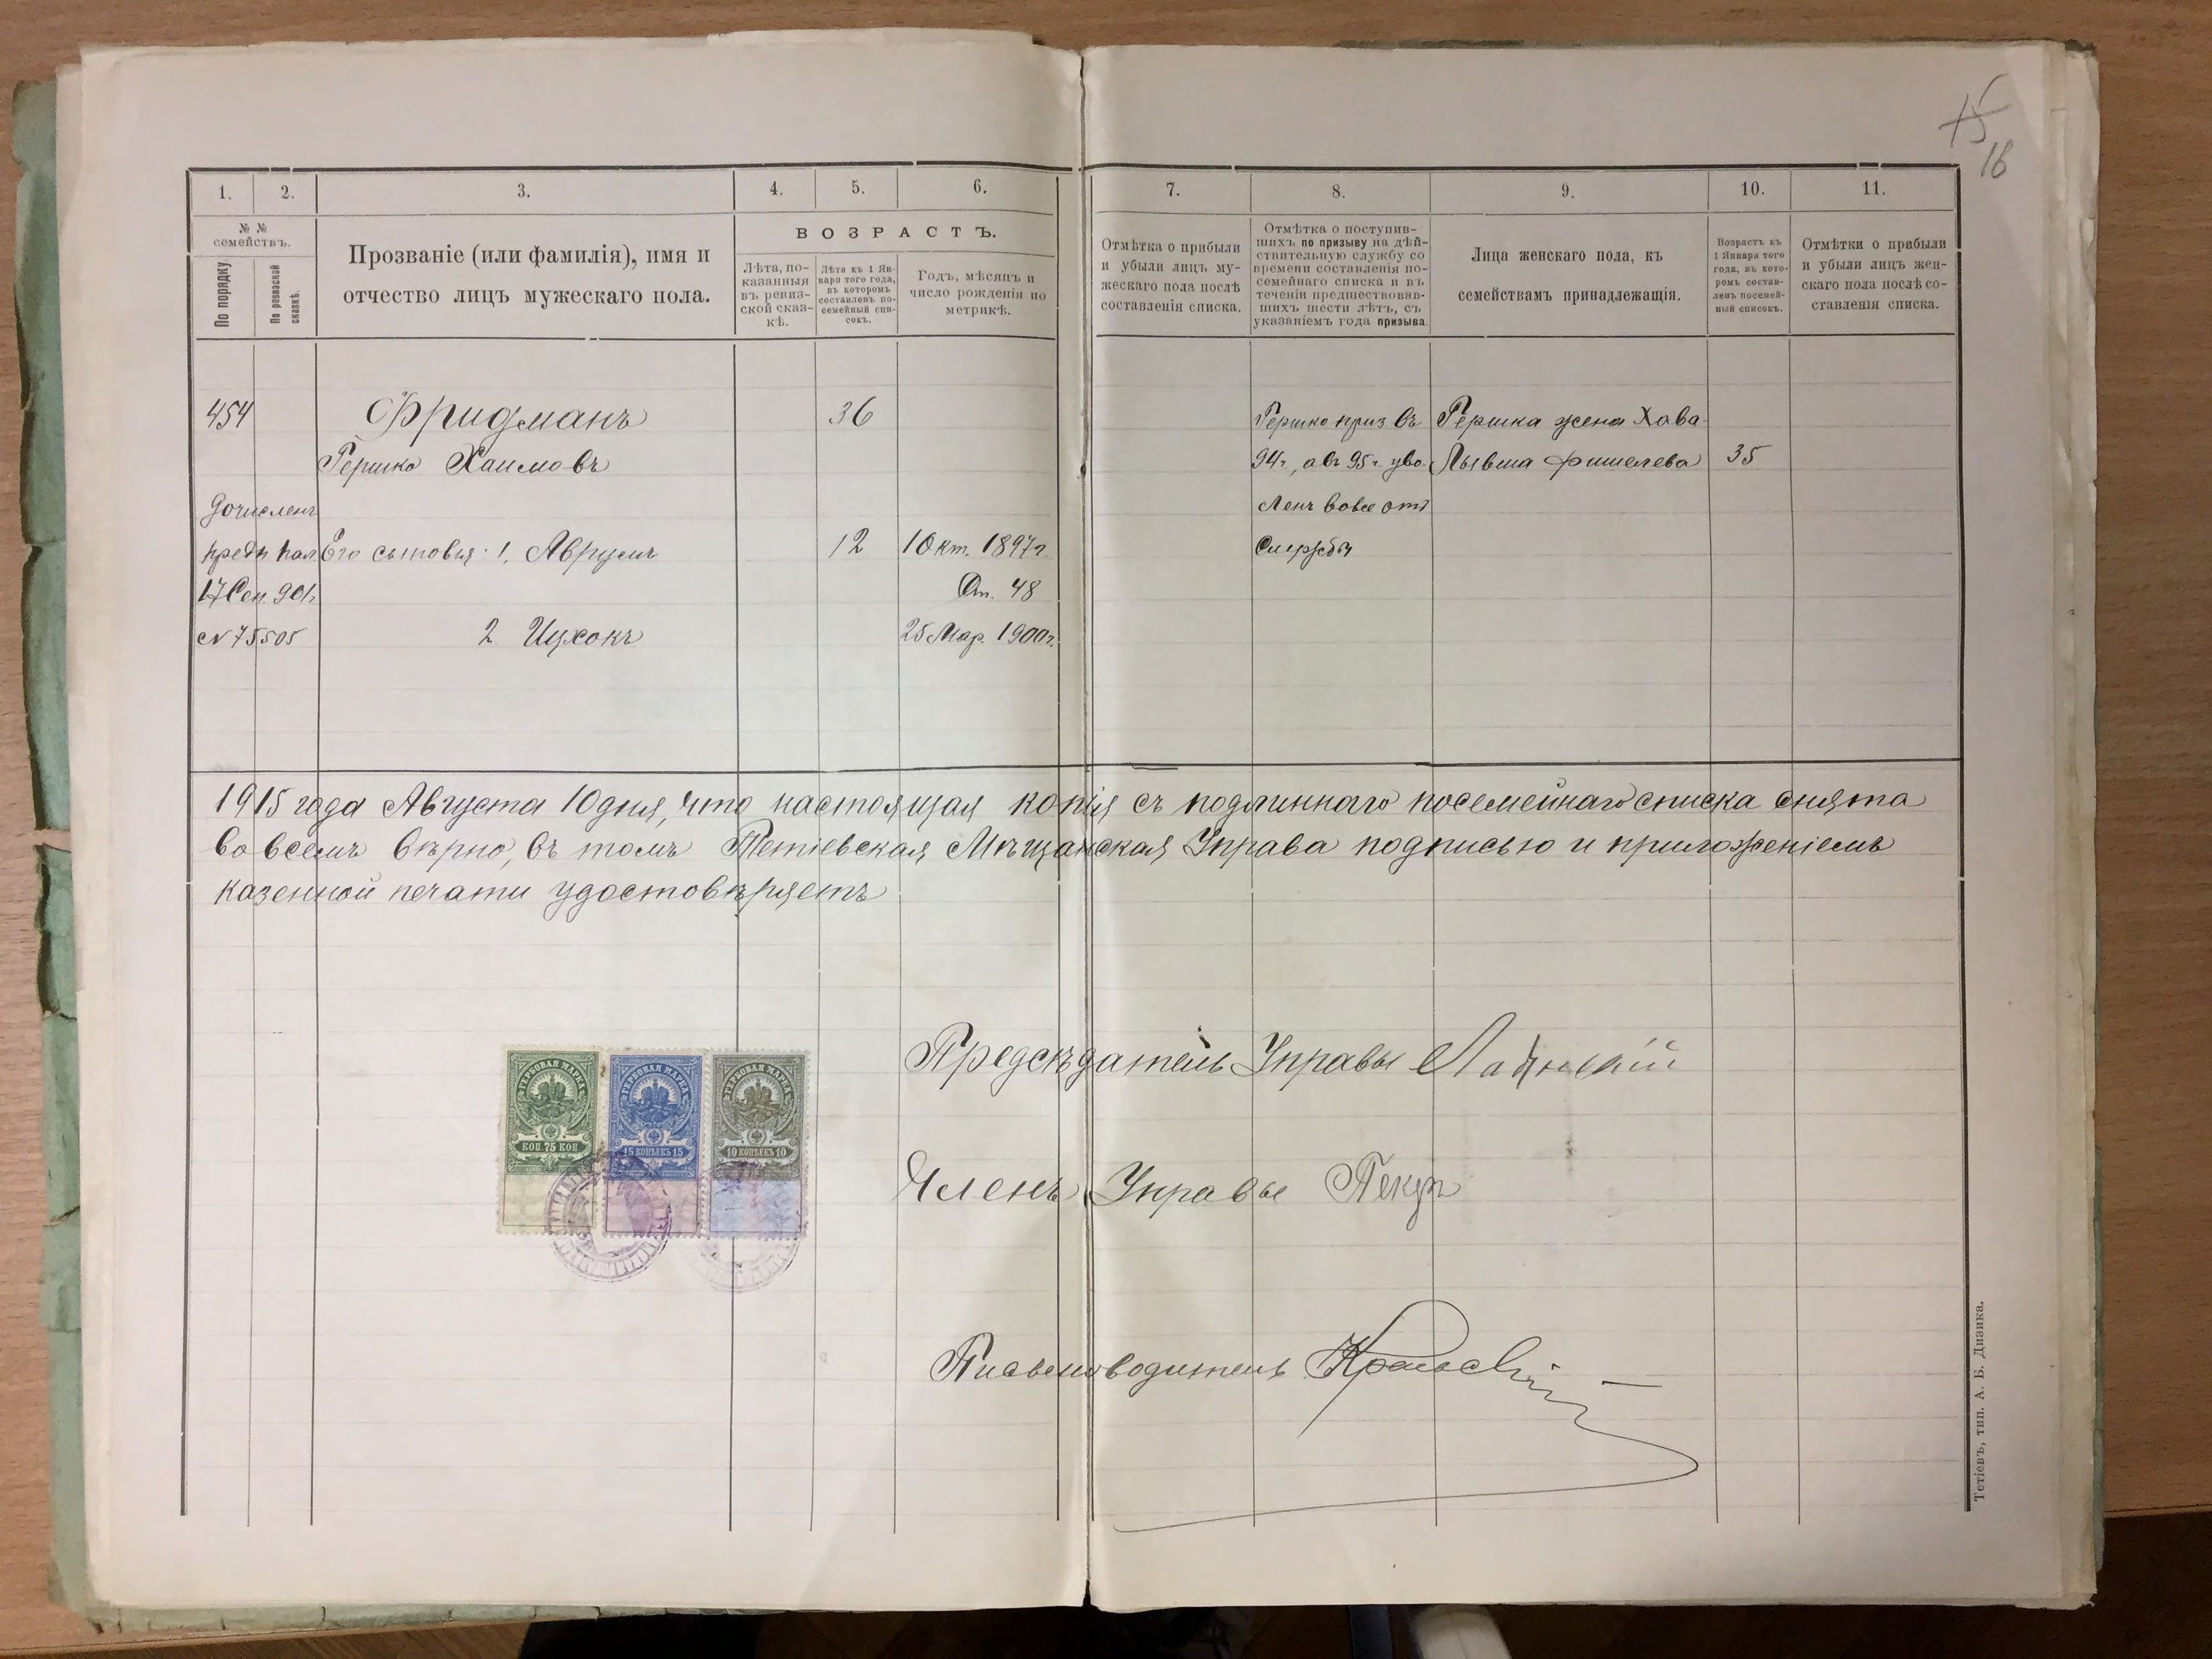 15
16
1. 2. 3. 4. 5. 6. 7. 8. 9. 10. 11.
№ №
семействъ.
По порядку
По ревизской
сказкѣ.
Прозваніе (или фамилія), имя и
отчество лицъ мужескаго пола.
ВОЗРАСТЪ.
Лѣта, по-
казанныя
въ ревиз-
ской сказ-
кѣ.
Лѣта къ 1 Ян-
варя того года,
въ которомъ
составленъ по-
семейный спи-
сокъ.
Годъ, мѣсяцъ и
число рожденія по
метрикѣ.
Отмѣтка о прибыли
и убыли лицъ му-
жескаго пола послѣ
составленія списка.
Отмѣтка о поступив-
шихъ по призыву на дѣй-
ствительную службу со
времени составленія по-
семейнаго списка и въ
теченіи предшествовав-
шихъ шести лѣтъ, съ
указаніемъ года призыва
Лица женскаго пола, къ
семействамъ принадлежащія.
Возрастъ къ
1 Января того
года, въ кото-
ромъ состав-
ленъ посемей-
ный списокъ.
Отмѣтки о прибыли
и убыли лицъ жен-
скаго пола послѣ со-
ставленія списка.
454 Фридманъ 36
Гершко Хаимовъ
дочисленъ
предп пал
17 Сен. 901г.
№ 75505
Его сыновья: 1. Аврумъ 12 1 Окт. 1897г.
От. 48
2 Ицхокъ 25 Мар. 1900г.
Гершко приз. въ
94г., а въ 95г. уво-
ленъ вовсе отъ
Службы
Гершка жена Хава
Лывша Фишелева 35
1915 года Августа 10 дня, что настоящая копія съ подлиннаго посемейнаго списка снята
во всемъ вѣрно, въ томъ Тетіевская Мѣщанская Управа подписью и приложеніемъ
казенной печати удостовѣряетъ
ГЕРБОВАЯ МАРКА
КОП. 75 КОП
ГЕРБОВАЯ МАРКА
15 КОПѢЕКЪ 15
ГЕРБОВАЯ МАРКА
10 КОПѢЕКЪ 10
Предсѣдатель Управы
Членъ Управы
Письмоводитель
Тетіевъ, тип. А. Б. Дизика.